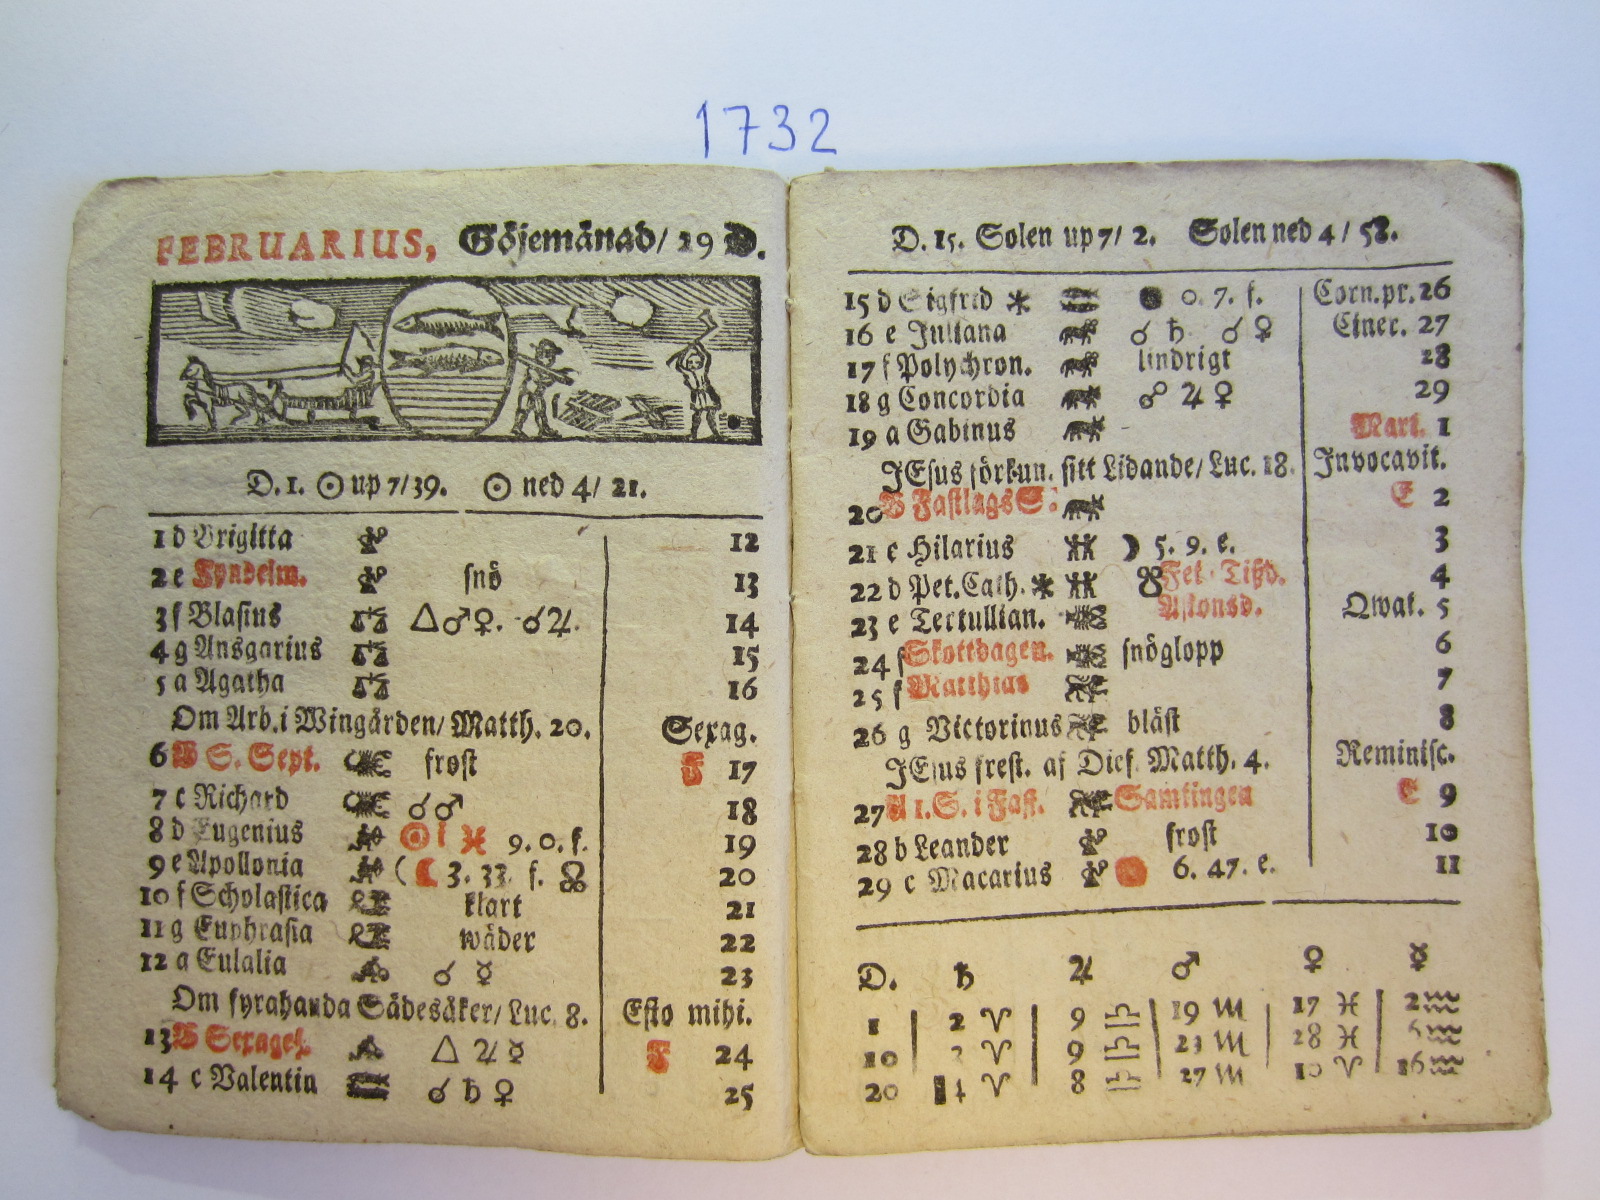 1732
FEBRUARIUS, Göjemånad/ 29 D.
D. 1. ☉ up 7/39. ☉ ned 4/ 21.
1 d Brigitta 12
2 e Kyndelm. snö 13
3 f Blasius △ ♂ ♀. ☌ ♃. 14
4 g Ansgarius 15
5 a Agatha 16
Om Arb. i Wingården/ Matth. 20. Sexag.
6 B S. Sept. frost F 17
7 c Richard ☌ ♂ 18
8 d Eugenius ☉ i ♓ 9. 0. f. 19
9 e Apollonia ( ☾ 3. 33. f. ☊ 20
10 f Scholastica klart 21
11 g Euphrasia wäder 22
12 a Eulalia ☌ ☿ 23
Om fyrahanda Sädesåker/ Luc. 8. Esto mihi.
13 B Sexages. △ ♃ ☿ F 24
14 c Valentin ☌ ♄ ♀ 25
D. 15. Solen up 7/ 2. Solen ned 4/ 58.
15 d Sigfrid ⚹ ● 0. 7. f. Corn.pr. 26
16 e Juliana ☌ ♄ ☌ ♀ Ciner. 27
17 f Polychron. lindrigt 28
18 g Concordia ☍ ♃ ♀ 29
19 a Gabinus Mart. 1
JEsus förkun. sitt Lidande/ Luc. 18. Invocavit.
20 B Fastlags S. E 2
21 c Hilarius ☽ 5. 9. e. 3
22 d Pet. Cath. ⚹ ☋ Fet-Tisd. 4
23 e Tertullian. Askonsd. Qwat. 5
24 f Skottdagen. snöglopp 6
25 f Matthias 7
26 g Victorinus blåst 8
JEsus frest. af Dief. Matth. 4. Reminisc.
27 A 1. S. i Fast. Samtingen E 9
28 b Leander frost 10
29 c Macarius 6. 47. e. 11
D. ♄ ♃ ♂ ♀ ☿
1 2 ♈ 9 ♎ 19 ♏ 17 ♓ 2 ♒
10 ♈ 9 ♎ 23 ♏ 28 ♓ ♒
20 4 ♈ 8 ♎ 27 ♏ 10 ♈ 16 ♒